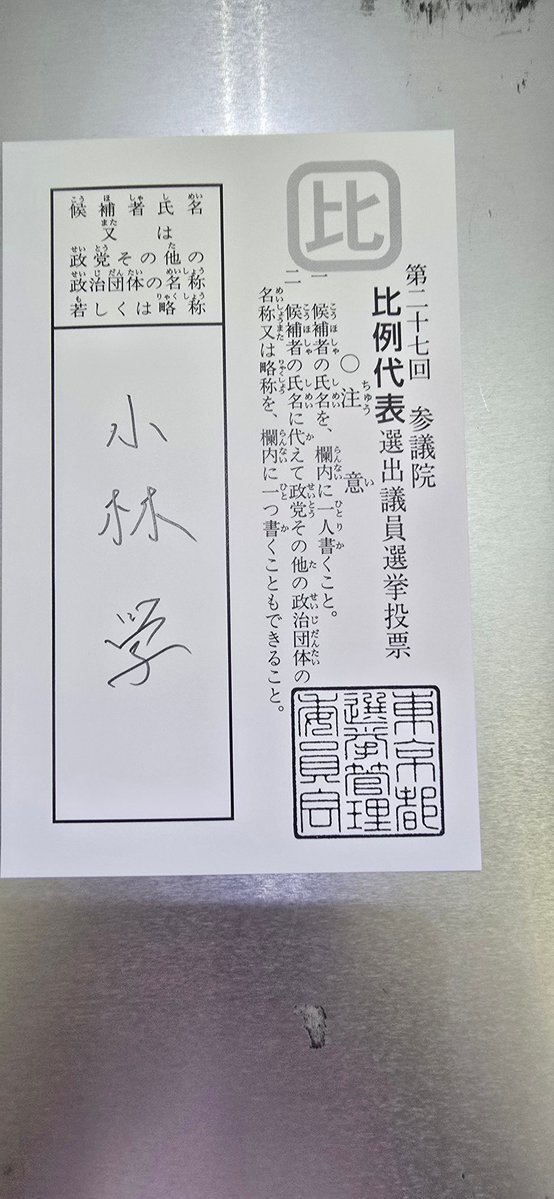 比
第二十七回 参議院
比例代表選出議員選挙投票
〇注意
一 候補者の氏名を、欄内に一人書くこと。
二 候補者の氏名に代えて政党その他の政治団体の
名称又は略称を、欄内に一つ書くこともできること。
東京都
選挙管理
委員会
候補者氏名
又は
政党その他の
政治団体の名称
若しくは略称
小林学